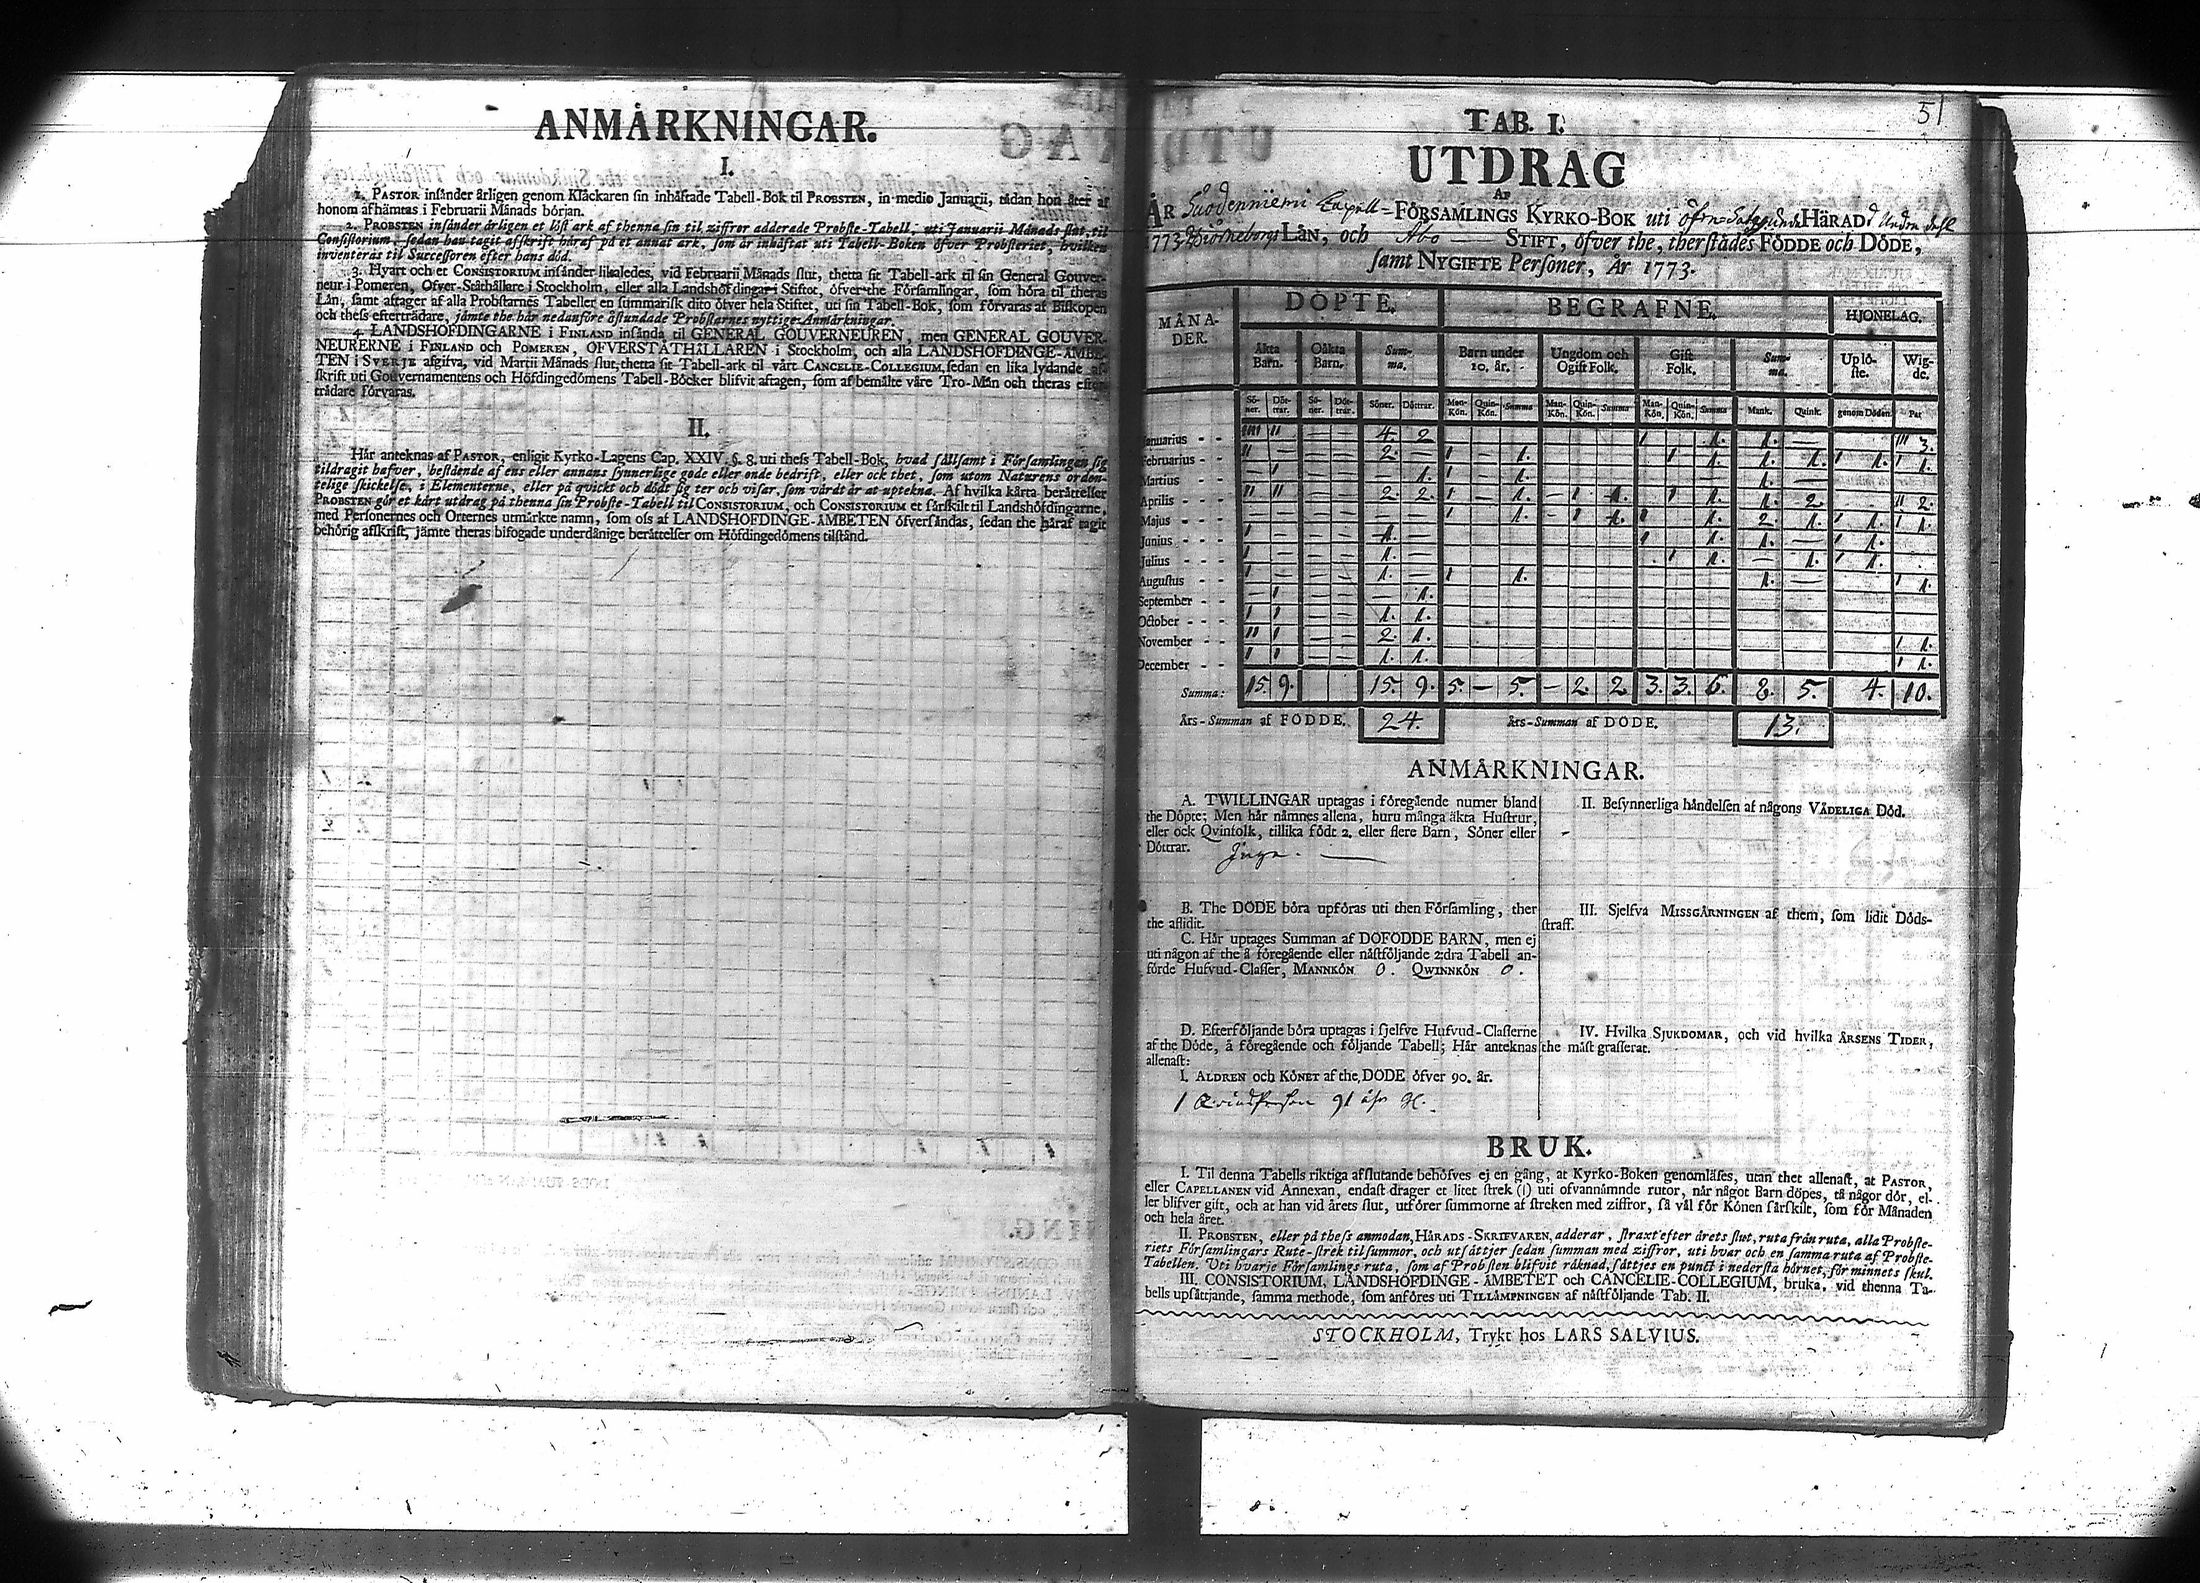 ANMÄRKNINGAR.
I.
1. PASTOR insänder årligen genom Kläckaren sin inhäftade Tabell-Bok til PROBSTEN, in medio Januarii, sådan hon åter af
honom afhämtas i Februarii Månads början.
2. PROBSTEN insänder årligen et löst ark af thenna sin til ziffror adderade Probste-Tabell, uti Januarii Månads slut, til
Consistorium, sedan han tagit afskrift häraf på et annat ark, som är inhäftat uti Tabell-Boken öfver Probsteriet, hvilken
inventeras til Successoren efter hans död.
3. Hvart och et CONSISTORIUM insänder likaledes, vid Februarii Månads slut, thetta sit Tabell-ark til sin General Gouver-
neur i Pomeren, Öfver-Ståthållare i Stockholm, eller alla Landshöfdingar i Stiftet, öfver the Församlingar, som höra til theras
Län, samt aftager af alla Probstarnes Tabeller en summarisk dito öfver hela Stiftet, uti sin Tabell-Bok, som förvaras af Biskopen
och thess efterträdare, jämte the här nedanföre åstundade Probstarnes nyttige Anmärkningar.
4. LANDSHÖFDINGARNE i FINLAND insända til GENERAL GOUVERNEUREN, men GENERAL GOUVER-
NEURERNE i FINLAND och POMEREN, ÖFVERSTÅTHÅLLAREN i Stockholm, och alla LANDSHÖFDINGE-ÄMBE-
TEN i SVERJE afgifva, vid Martii Månads slut, thetta sit Tabell-ark til vårt CANCELIE-COLLEGIUM, sedan en lika lydande af-
skrift uti Gouvernamentens och Höfdingedömens Tabell-Böcker blifvit aftagen, som af bemälte våre Tro-Män och theras efter-
trädare förvaras.
II.
Här anteknas af PASTOR, enligit Kyrko-Lagens Cap. XXIV. §. 8. uti thess Tabell-Bok, hvad sällsamt i Församlingen sig
tildragit hafver, bestående af ens eller annans synnerlige gode eller onde bedrift, eller ock thet, som utom Naturens orden-
telige skickelse, i Elementerne, eller på qvickt och dödt sig ter och visar, som värdt är at uptekna. Af hvilka kårta berättelser
PROBSTEN gör et kårt utdrag på thenna sin Probste-Tabell til CONSISTORIUM, och CONSISTORIUM et särskilt til Landshöfdingarne,
med Personernes och Orternes utmärkte namn, som oss af LANDSHÖFDINGE-ÄMBETEN öfversändas, sedan the häraf tagit
behörig afskrift, jämte theras bifogade underdånige berättelser om Höfdingedömens tilstånd.
51
TAB. I.
UTDRAG
AF
ÅR Suodenniemi Capell-FÖRSAMLINGS KYRKO-BOK uti öfre Satagunda HÄRAD Andra del
1773 Biörneborgs LÄN, och Åbo STIFT, öfver the, therstädes FÖDDE och DÖDE,
samt NYGIFTE Personer, År 1773.
MÅNA-DER. DÖPTE. BEGRAFNE. HJONELAG.
Äkta Barn. Oäkta Barn. Sum-ma. Barn under 10. år. Ungdom och Ogift Folk. Gift Folk. Sum-ma. Uplö-ste. Wig-de.
Sö-ner. Döt-trar. Sö-ner. Döt-trar. Söner. Döttrar. Man-Kön. Quin-Kön. Summa Man-Kön. Quin-Kön. Summa Man-Kön. Quin-Kön. Summa Mank. Quink. genom Döden Par
Januarius - - IIII II — — 4. 2 I 1. 1. — III 3.
Februarius - - II — — — 2. — I — 1. I 1. 1. 1. I 1. I 1.
Martius - - — I — — — 1. I — 1. 1.
Aprilis - - II II — — 2. 2. I — 1. — I 1. I 1. 1. 2. II 2.
Majus - - — — — — — — I 1. — I 1. I 1. 2. 1. I 1. I 1.
Junius - - I — — — 1. — I 1. 1. — I 1.
Julius - - I — — — 1. — I 1. — 1. I 1.
Augustus - - I — — — 1. — I 1. 1. — I 1.
September - - — I — — — 1.
October - - I I — — 1. 1.
November - - II I — — 2. 1. I 1.
December - - I I — — 1. 1. I 1.
Summa: 15. 9. 15. 9. 5. — 5. — 2. 2. 3. 3. 6. 8. 5. 4. 10.
Års-Summan af FÖDDE. 24. Års-Summan af DÖDE. 13.
ANMÄRKNINGAR.
A. TWILLINGAR uptagas i föregående numer bland
the Döpte; Men här nämnes allena, huru många äkta Hustrur,
eller ock Qvinfolk, tillika födt 2. eller flere Barn, Söner eller
Döttrar. Inga. —
B. The DÖDE böra upföras uti then Församling, ther
the aflidit.
C. Här uptages Summan af DÖFÖDDE BARN, men ej
uti någon af the å föregående eller nästföljande 2:dra Tabell an-
förde Hufvud-Classer, MANNKÖN 0. QWINNKÖN 0.
D. Efterföljande böra uptagas i sjelfve Hufvud-Classerne
af the Döde, å föregående och följande Tabell; Här anteknas
allenast:
I. ÅLDREN och KÖNET af the DÖDE öfver 90. år.
1 Qvinds Person 91 åhr gl.
II. Besynnerliga händelsen af någons VÅDELIGA Död.
-
III. Sjelfva MISSGÄRNINGEN af them, som lidit Döds-
straff.
IV. Hvilka SJUKDOMAR, och vid hvilka ÅRSENS TIDER,
the mäst grasserat.
BRUK.
I. Til denna Tabells riktiga afslutande behöfves ej en gång, at Kyrko-Boken genomläses, utan thet allenast, at PASTOR,
eller CAPELLANEN vid Annexan, endast drager et litet strek (I) uti ofvannämnde rutor, när något Barn döpes, tå någor dör, el-
ler blifver gift, och at han vid årets slut, utförer summorne af streken med ziffror, så väl för Könen särskilt, som för Månaden
och hela året.
II. PROBSTEN, eller på thess anmodan, HÄRADS-SKRIFVAREN, adderar, straxt efter årets slut, ruta från ruta, alla Probste-
riets Församlingars Rute-strek til summor, och utsättjer sedan summan med ziffror, uti hvar och en samma ruta af Probste-
Tabellen. Uti hvarje Församlings ruta, som af Probsten blifvit räknad, sättjes en punct i nedersta hörnet, för minnets skul.
III. CONSISTORIUM, LANDSHÖFDINGE-ÄMBETET och CANCELIE-COLLEGIUM, bruka, vid thenna Ta-
bells upsättjande, samma methode, som anföres uti TILLÄMPNINGEN af nästföljande Tab. II.
STOCKHOLM, Trykt hos LARS SALVIUS.